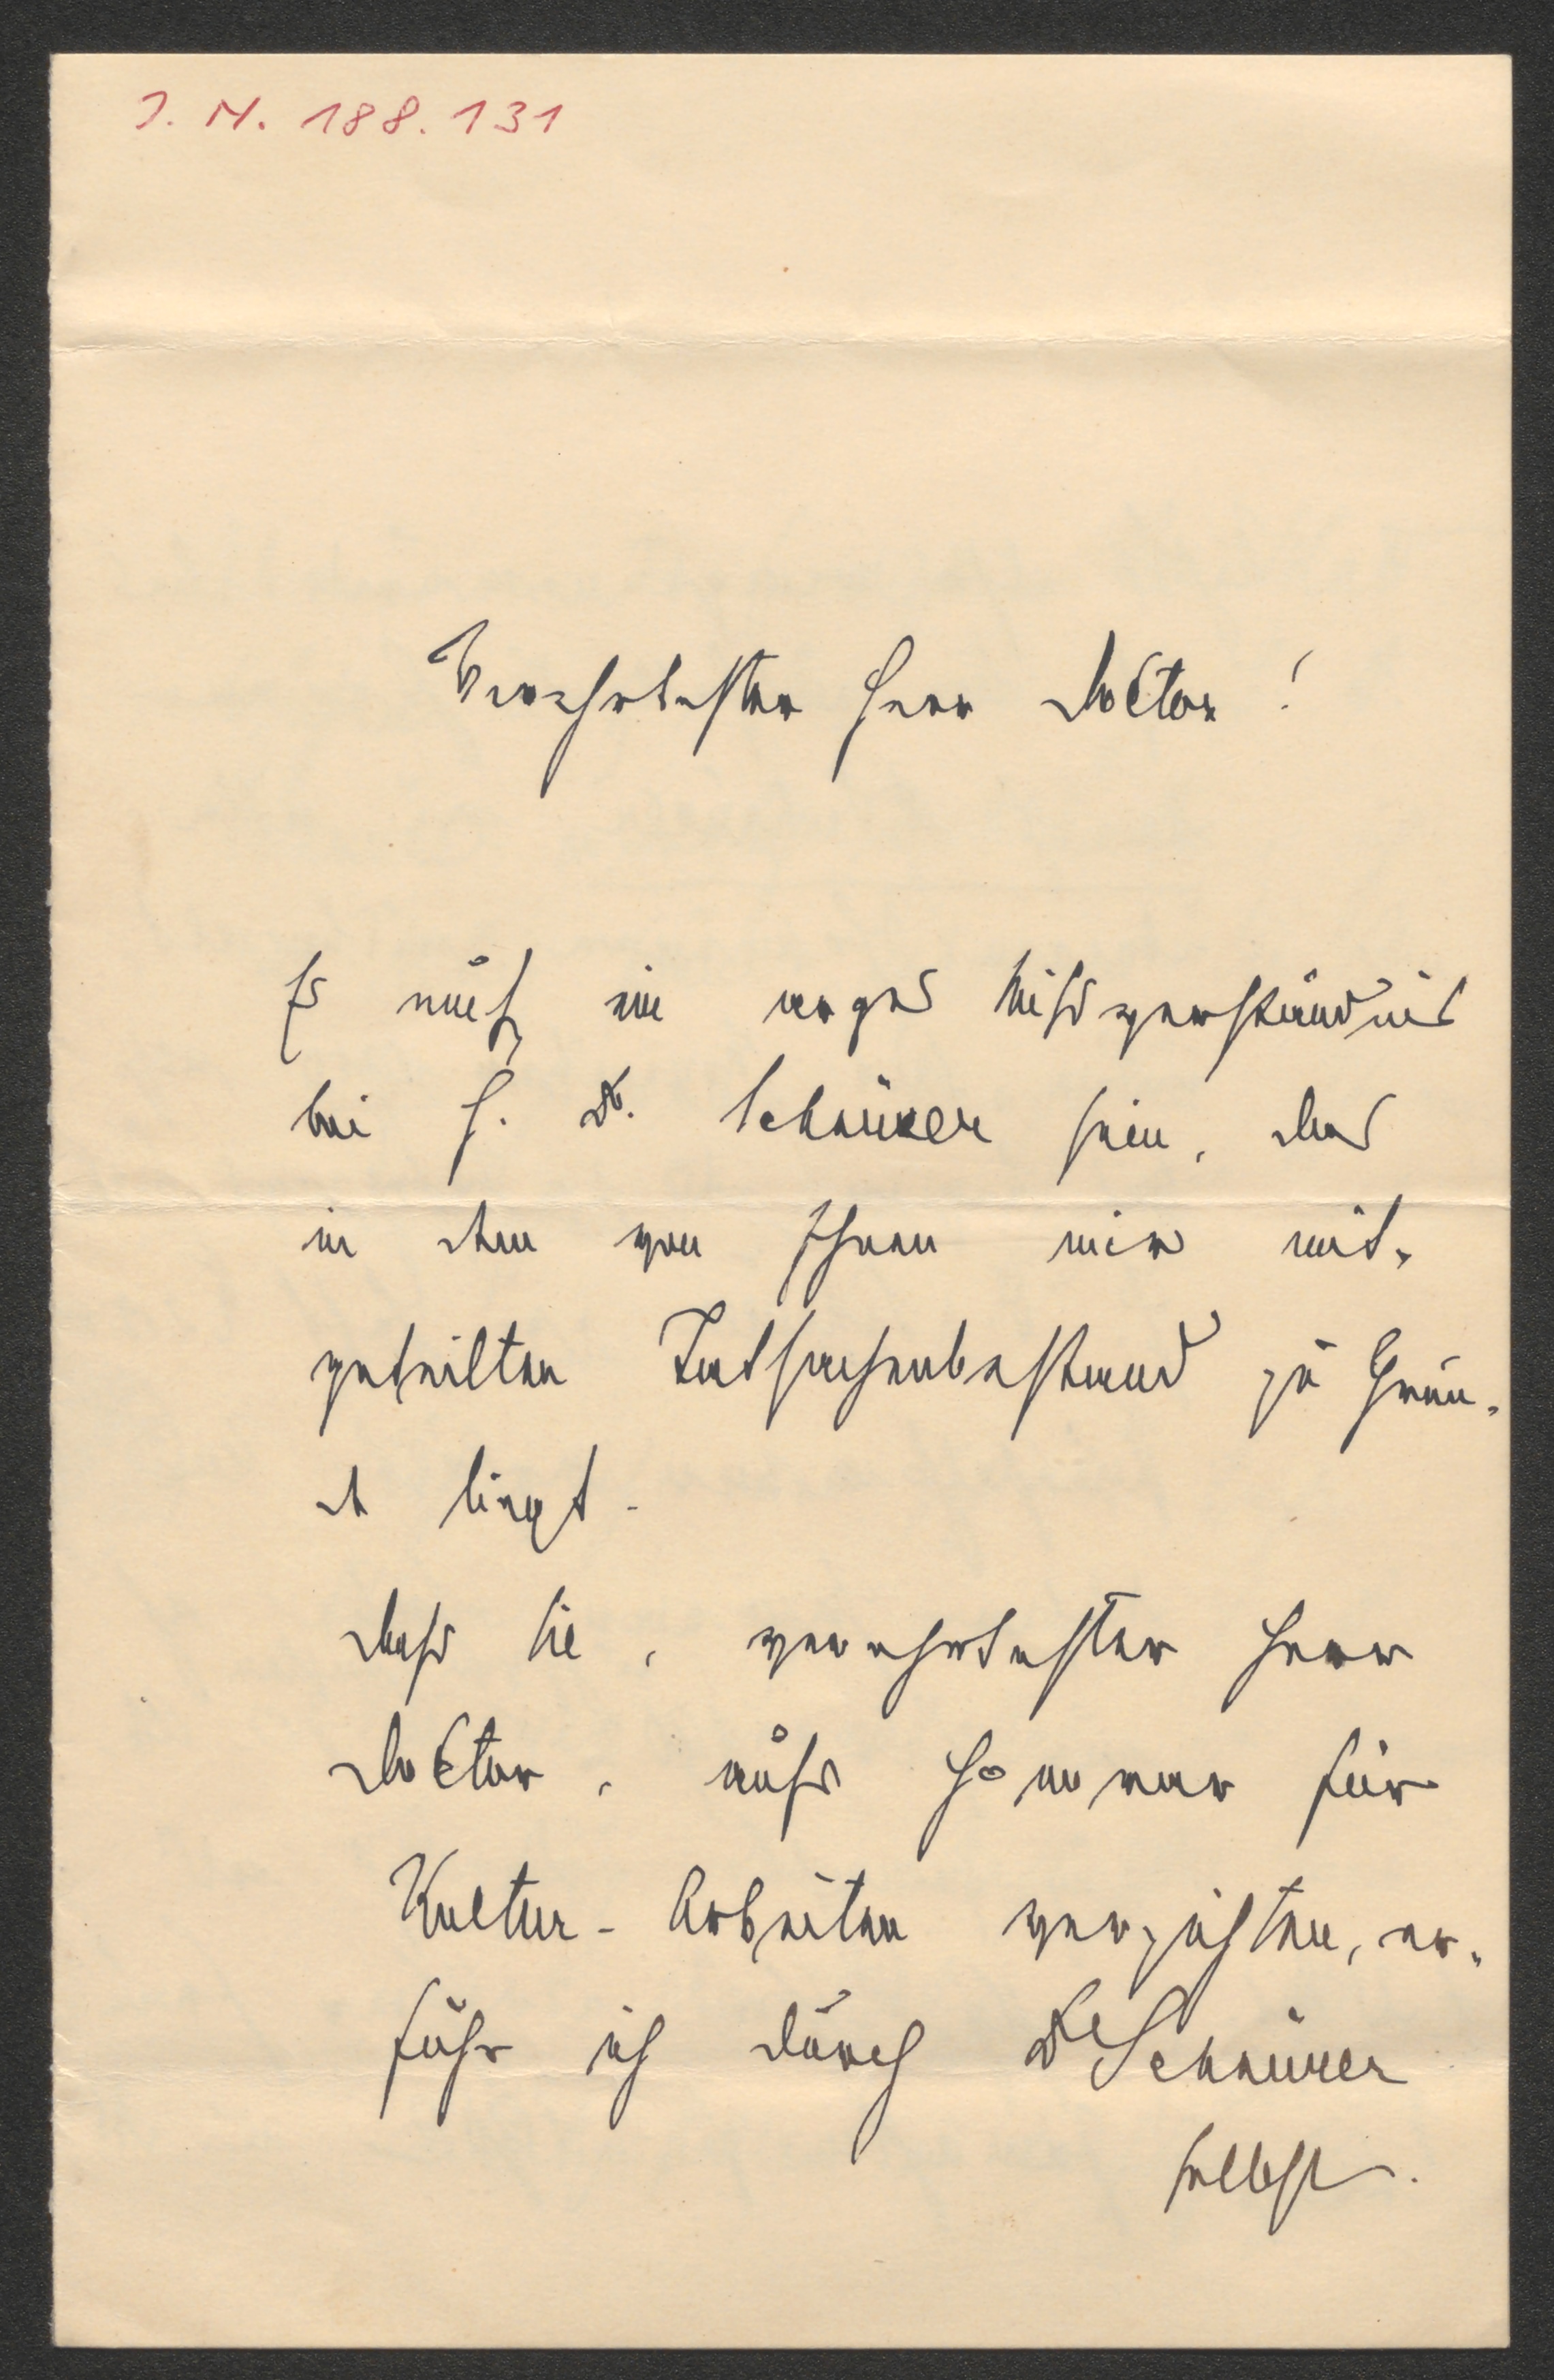 J. N. 188.131
Verehrtester Herr Doctor!
Es muß ein arges Missverständnis
bei H. Dr. Schaurer sein, das
in dem von Ihnen mir mit-
geteilten Tatsachenbestand zu Grun-
de liegt.
Dass Sie, verehrtester Herr
Doctor, aufs Honorar für
Kultur-Arbeiten verzichten, er-
fuhr ich durch Dr
selbst.